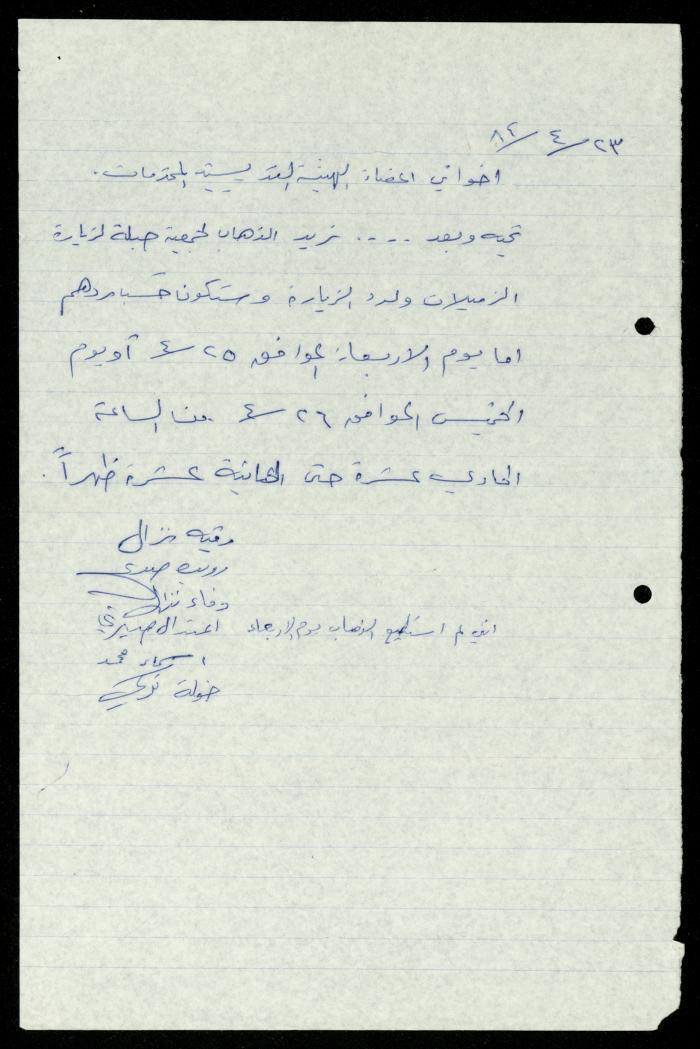 ٨٤/٤/٢٣
اخواتي اعضاء الهيئة التدريسية المحترمات.
تحيه وبعد .... نريد الذهاب لجمعية جبلة لزيارة
الزميلات ولرد الزيارة وستكون حسب ردهم
اما يوم الاربعاء الموافق ٤/٢٥ أو يوم
الخميس الموافق ٤/٢٦ من الساعة
الحادي عشرة حتى الثانية عشرة ظهراً.
رقيه نزال
وفاء نزال
انني لم استطيع الذهاب يوم الاربعاء اعتدال
اسماء محمد
خولة